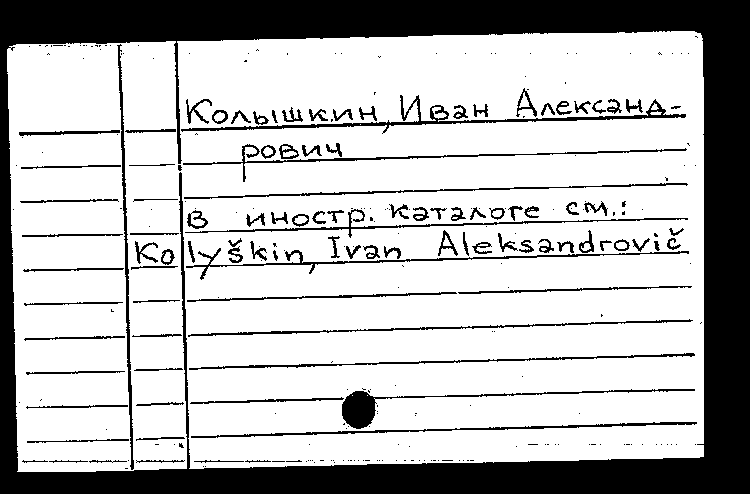 Колышкин, Иван Александ-
рович
в иностр. каталоге см.:
Kolyškin, Ivan Aleksandrovič